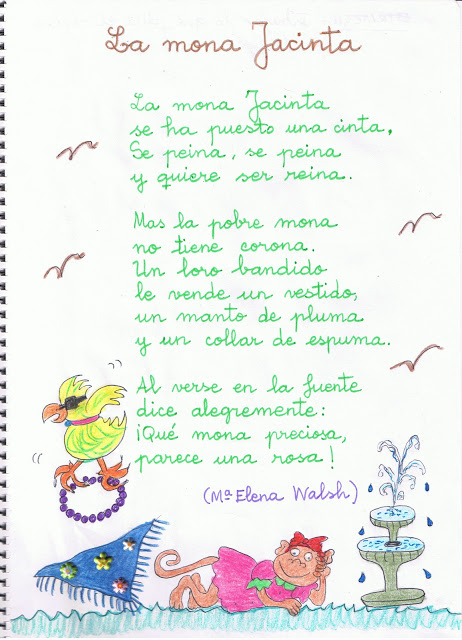 La mona Jacinta
La mona Jacinta
se ha puesto una cinta,
Se peina, se peina
y quiere ser reina.
Mas la pobre mona
no tiene corona.
Un loro bandido
le vende un vestido,
un manto de pluma
y un collar de espuma.
Al verse en la fuente
dice alegremente:
¡Qué mona preciosa,
parece una rosa!
(Mª Elena Walsh)